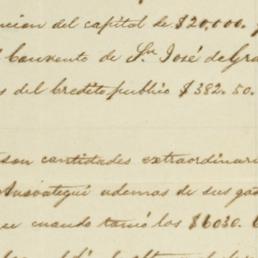 ncion del capital de $20,000.
Convento de Sn José de Gra
s del Credito publico $382.50.
son cantidades extraordinari
Ansoategui ademas de sus gas
cuando tomó los $6030.